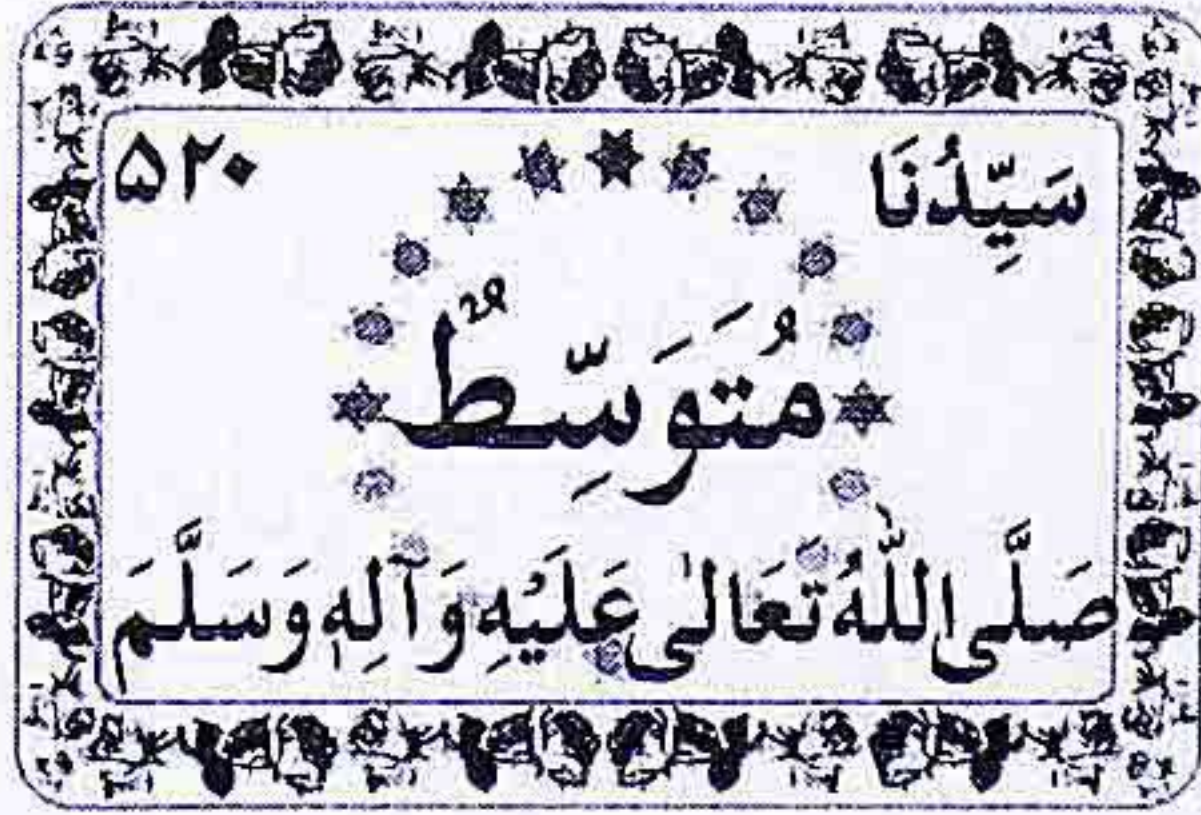 سَيِّدُنَا ۵۲۰
مُتَوَسِّطٌ
صَلَّی اللّٰهُ تَعَالٰی عَلَیْهِ وَآلِهٖ وَسَلَّمَ